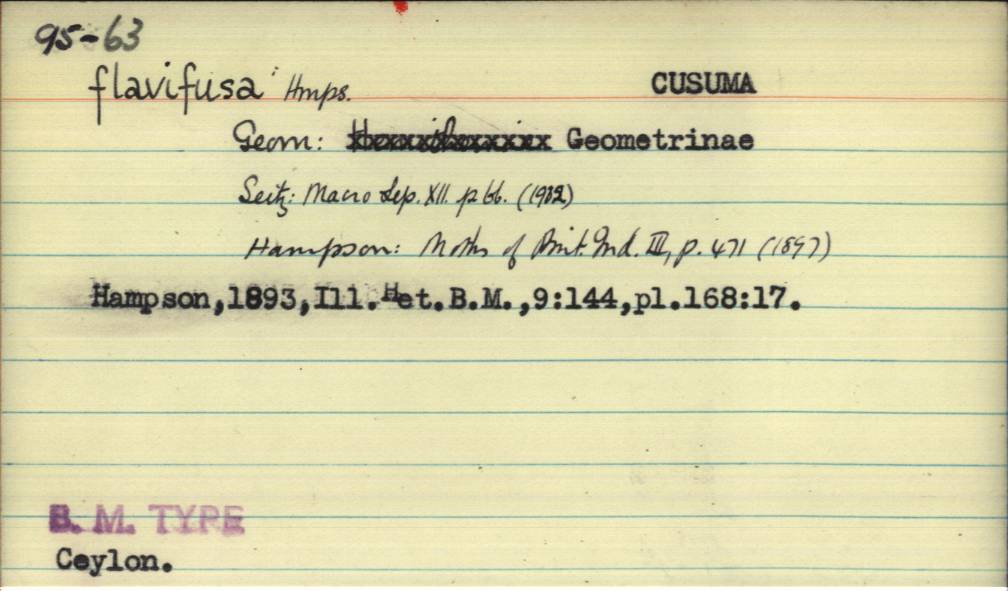 95-63
flavifusa Hmps. CUSUMA
Geom: Geometrinae
Seitz: Macro Lep. XII. p 66. (1912)
Hampson: Moths of Brit. Ind. III, p. 471 (1897)
Hampson,1893,Ill.Het.B.M.,9:144,pl.168:17.
B. M. TYPE
Ceylon.